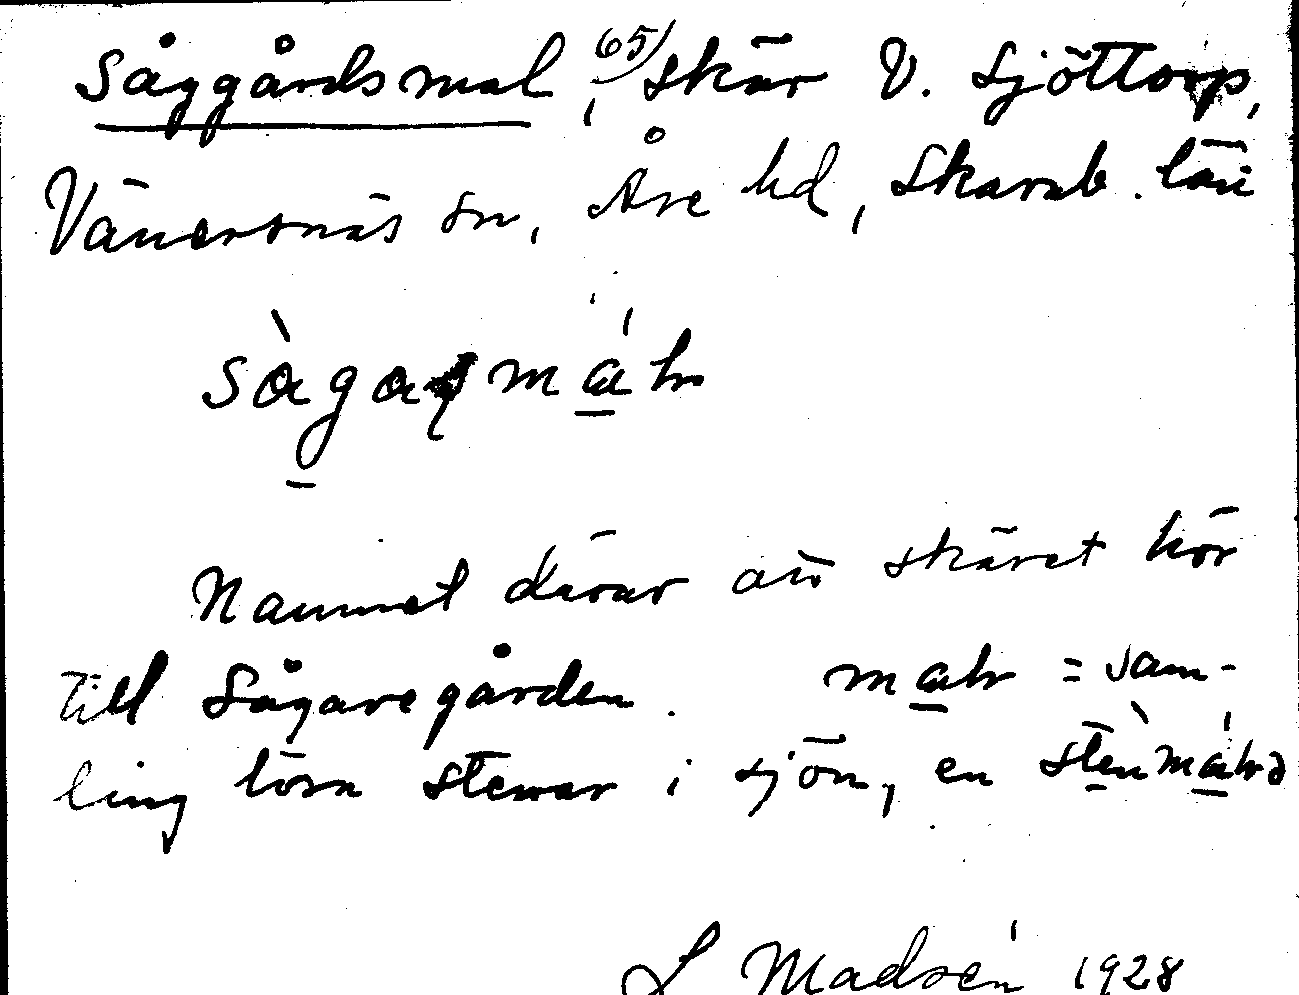 Såggårdsmal, 65) skär V. Sjöttorp,
Vänersnäs sn, Åse hd, Skarab. län
Nammet därav att skäret hör
till Sågaregården. mal = sam-
ling lösa stenar i sjön, en
L Madsén 1928